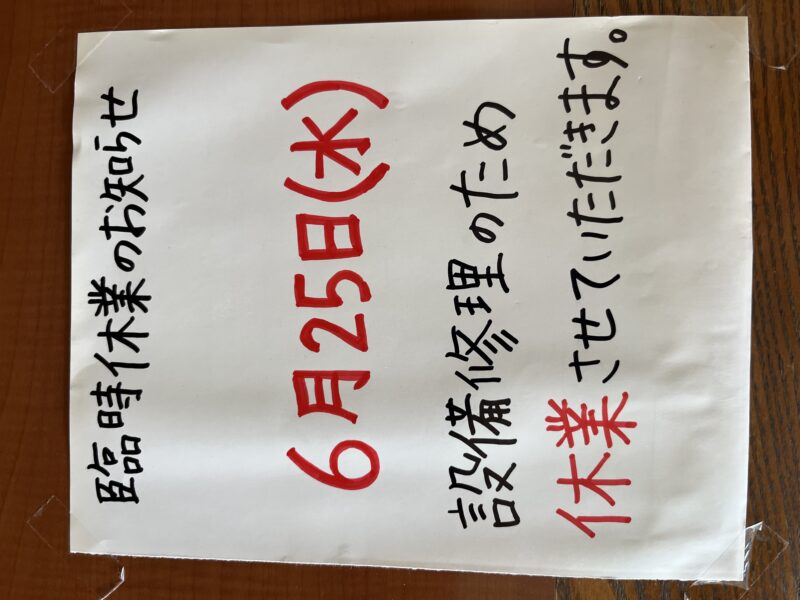 臨時休業のお知らせ
6月25日(水)
設備修理のため
休業させていただきます。